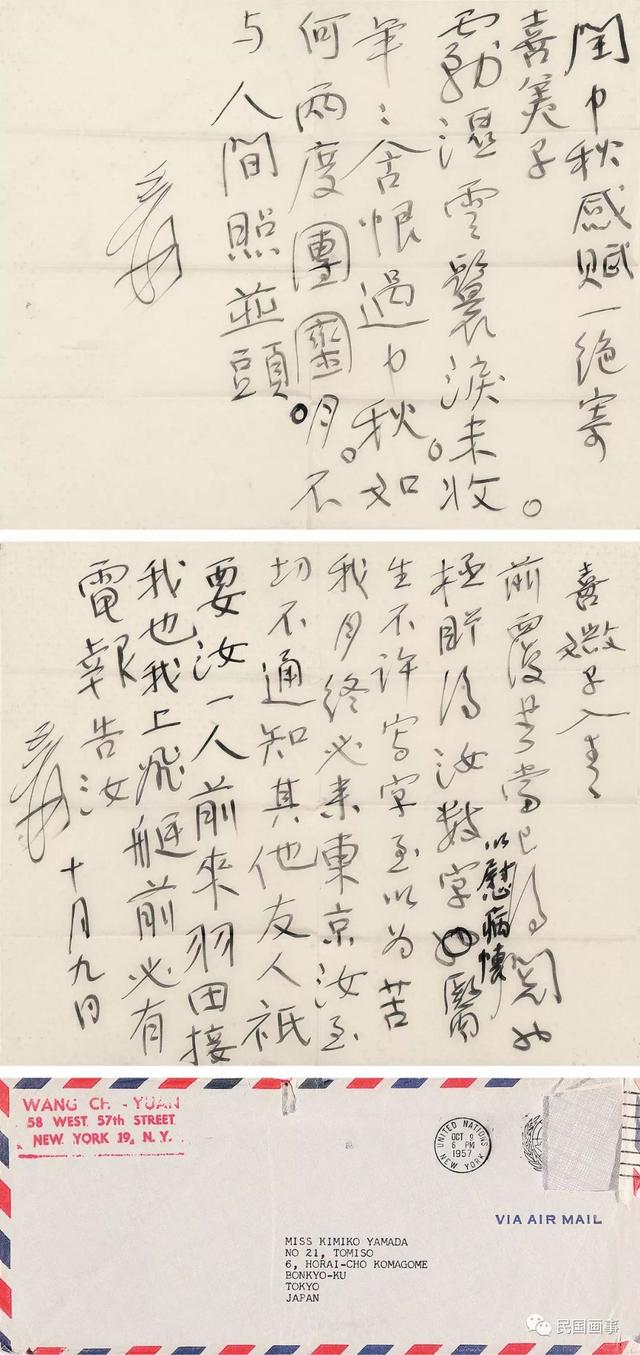 閏中秋感賦一絕寄
喜美子
露濕雲鬟淚未收。
年〻含恨過中秋。如
何兩度團圞月。不
与人間照並頭。
爰
喜媺子
前覆書當已得閱
極盼得汝數字以慰病懷醫
生不許寫字至以為苦
我月終必来東京汝至
切不通知其他友人祇
要汝一人前來羽田接
我也我上飛艇前必有
電報告汝
爰 十月九日
WANG CH -YUAN
58 WEST 57th STREET
NEW YORK 19, N. Y.
UNITED NATIONS
OCT 9
6 PM
1957
NEW YORK
VIA AIR MAIL
MISS KIMIKO YAMADA
NO 21, TOMISO
6, HORAI-CHO KOMAGOME
BONKYO-KU
TOKYO
JAPAN
民国画事